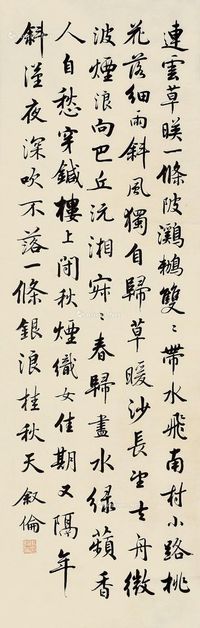 連雲草映一條陂鸂鶒雙〻帶水飛南村小路桃
花落細雨斜風獨自歸草暖沙長望去舟微
波煙浪向巴丘沅湘寂〻春歸盡水綠蘋香
人自愁穿鍼樓上閉秋煙織女佳期又隔年
斜漢夜深吹不落一條銀浪挂秋天 叙倫